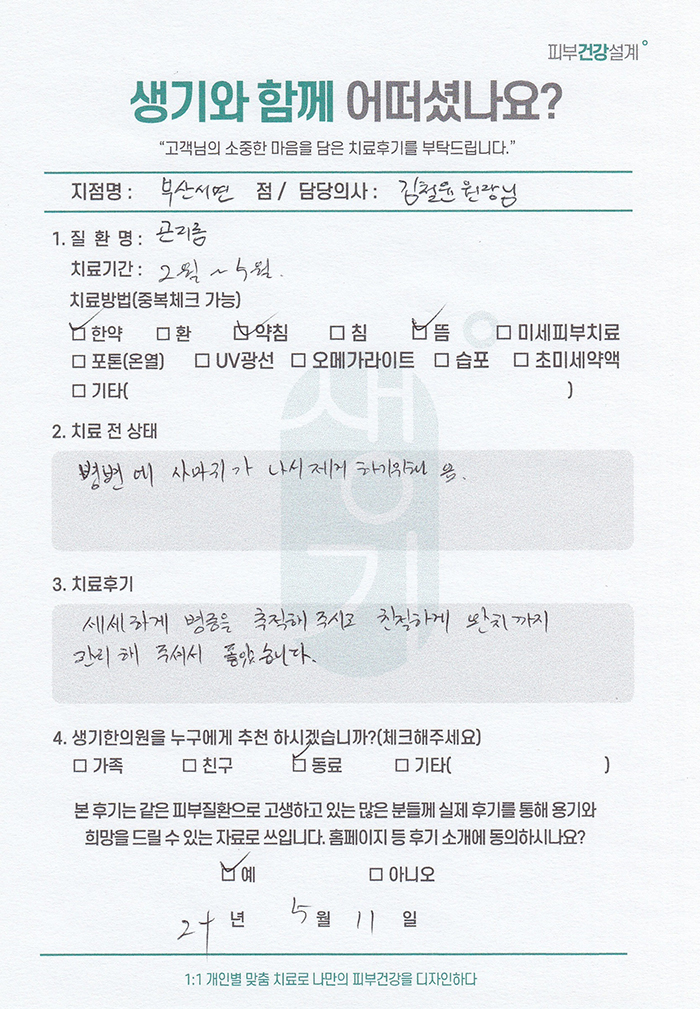 피부건강설계
생기와 함께 어떠셨나요?
“고객님의 소중한 마음을 담은 치료후기를 부탁드립니다.”
지점명 : 부산서면 점 / 담당의사 : 김철윤 원장님
1. 질 환 명 : 곤지름
치료기간 : 2월 ~ 5월.
치료방법(중복체크 가능)
☑ 한약 □ 환 ☑ 약침 □ 침 ☑ 뜸 □ 미세피부치료
□ 포톤(온열) □ UV광선 □ 오메가라이트 □ 습포 □ 초미세약액
□ 기타( )
2. 치료 전 상태
에 사마귀가 나서 제거 하기위해 옴.
생기
3. 치료후기
세세하게 병증을 추적해 주시고 친절하게 완치까지
관리해 주셔서 좋았습니다.
4. 생기한의원을 누구에게 추천 하시겠습니까?(체크해주세요)
□ 가족 □ 친구 ☑ 동료 □ 기타( )
본 후기는 같은 피부질환으로 고생하고 있는 많은 분들께 실제 후기를 통해 용기와
희망을 드릴 수 있는 자료로 쓰입니다. 홈페이지 등 후기 소개에 동의하시나요?
☑ 예 □ 아니오
24 년 5 월 11 일
1:1 개인별 맞춤 치료로 나만의 피부건강을 디자인하다